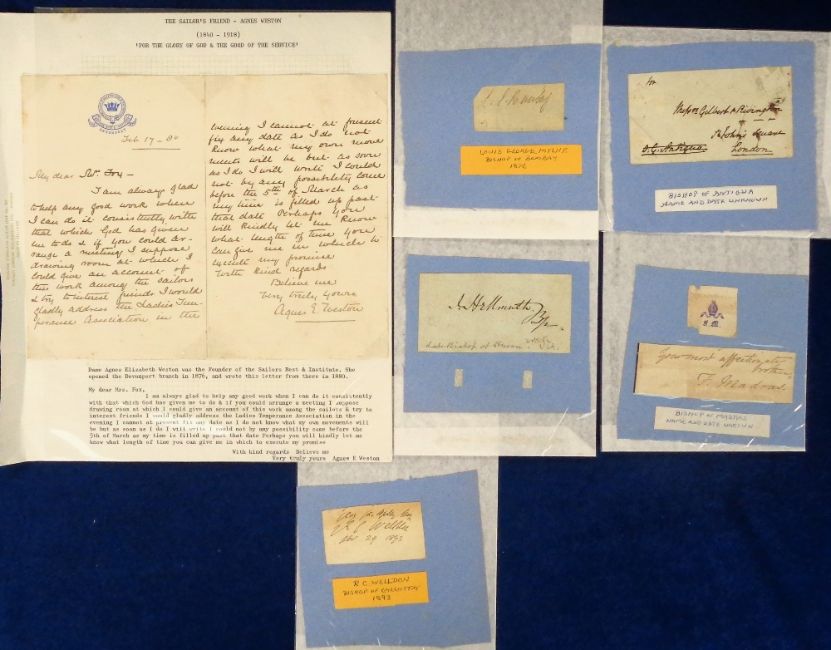 THE SAILOR'S FRIEND - AGNES WESTON
(1840 - 1918)
'FOR THE GLORY OF GOD & THE GOOD OF THE SERVICE'
Feb 17 - 80
My dear Mrs Fox -
I am always glad
to help any good work where
I can do it consistently with
that which God has given
me to do & if you could ar-
range a meeting I suppose
drawing room at which I
could give an account of
the work among the sailors
& try to interest friends I would
gladly address the Ladies Tem-
perance Association in the
evening I cannot at present
fix any date as I do not
know what my own move
ments will be but as soon
as I do I will write I could
not by any possibility come
before the 5th of March as
my time is filled up past
that date Perhaps you
will kindly let me know
what length of time you
can give me in which to
execute my promise
With kind regards
Believe me
Very truly yours
Agnes E Weston
Dame Agnes Elizabeth Weston was the Founder of the Sailors Rest & Institute. She
opened the Devonport branch in 1876, and wrote this letter from there in 1880.
My dear Mrs. Fox,
I am always glad to help any good work when I can do it consistently
with that which God has given me to do & if you could arrange a meeting I suppose
drawing room at which I could give an account of this work among the sailors & try to
interest friends I would gladly address the Ladies Temperance Association in the
evening I cannot at present fix any date as I do not know what my own movements will
be but as soon as I do I will write I could not by any possibility come before the
5th of March as my time is filled up past that date Perhaps you will kindly let me
know what length of time you can give me in which to execute my promise
With kind regards Believe me
Very truly yours Agnes E Weston
LOUIS GEORGE MYLNE
BISHOP OF BOMBAY
1876
Messrs Gilbert & Rivington
St John's Square
London
BISHOP OF ANTIGUA
NAME AND DATE UNKNOWN
Late Bishop of Huron
Your most affectionate
brother
F. Madras
BISHOP OF MADRAS
NAME AND DATE UNKNOWN
29 1893
R.C. WELLDON
BISHOP OF CALCUTTA
1893